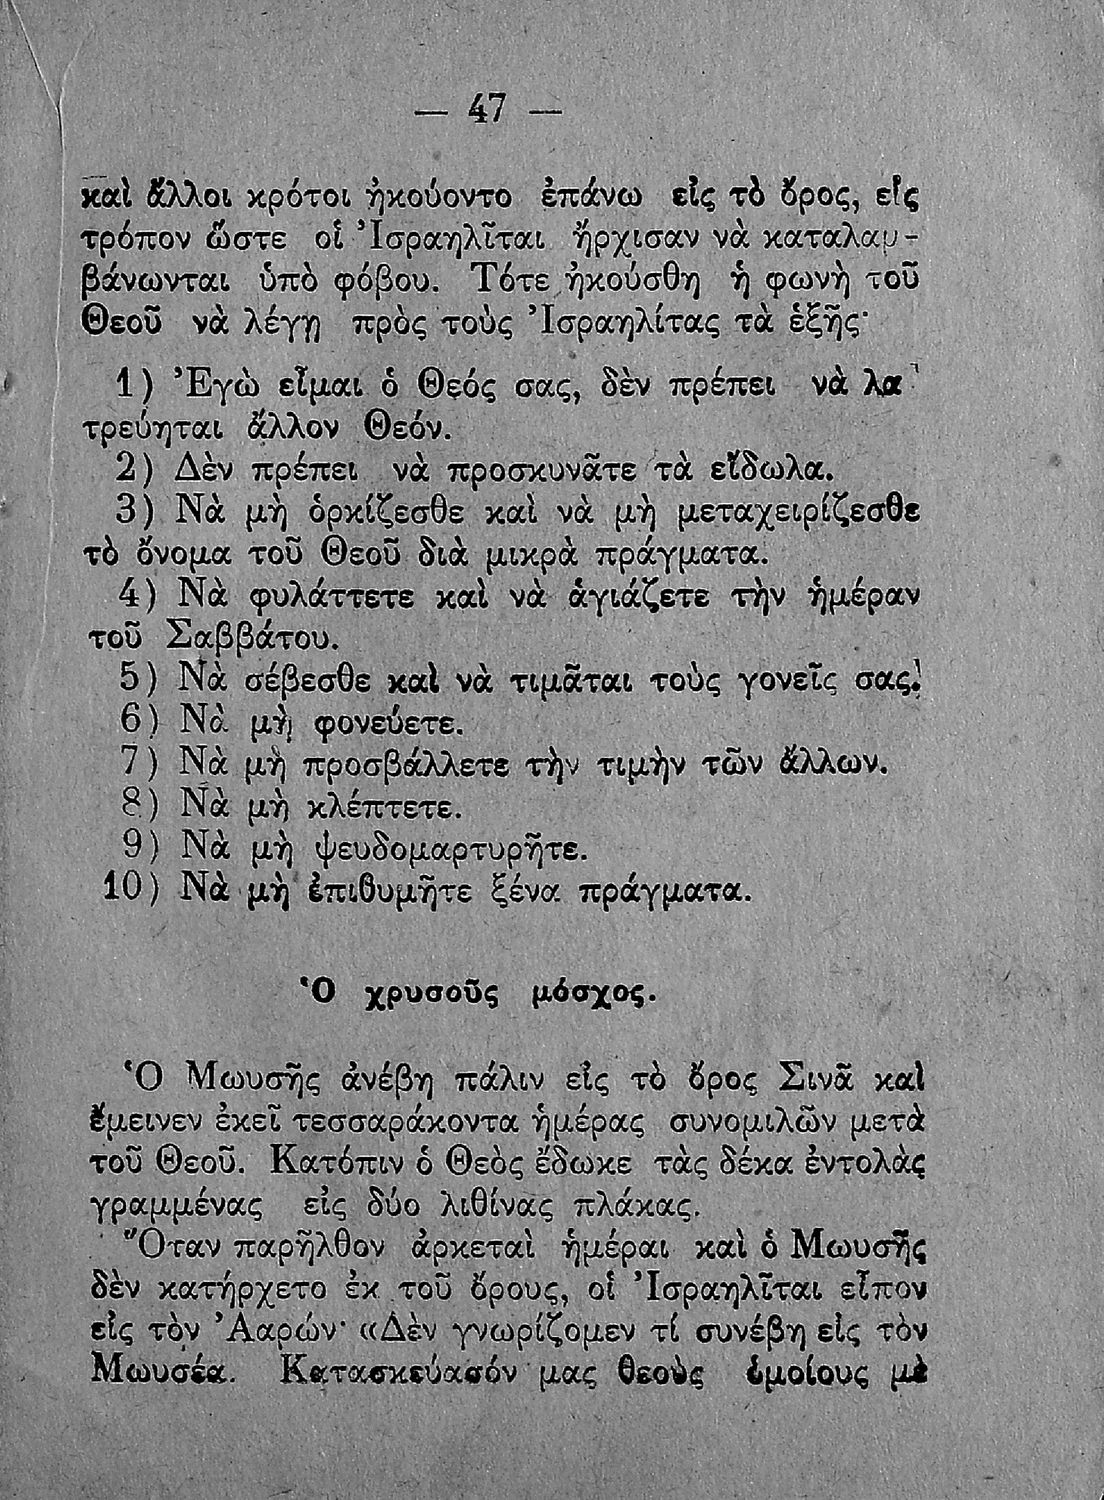 — 47 —
καὶ ἄλλοι κρότοι ἠκούοντο ἐπάνω εἰς τὸ ὄρος, εἰς
τρόπον ὥστε οἱ Ἰσραηλῖται ἤρχισαν νὰ καταλαμ-
βάνωνται ὑπὸ φόβου. Τότε ἠκούσθη ἡ φωνὴ τοῦ
Θεοῦ νὰ λέγῃ πρὸς τοὺς Ἰσραηλίτας τὰ ἑξῆς·
1) Ἐγὼ εἶμαι ὁ Θεός σας, δὲν πρέπει νὰ λα
τρεύηται ἄλλον Θεόν.
2) Δὲν πρέπει νὰ προσκυνᾶτε τὰ εἴδωλα.
3) Νὰ μὴ ὁρκίζεσθε καὶ νὰ μὴ μεταχειρίζεσθε
τὸ ὄνομα τοῦ Θεοῦ διὰ μικρὰ πράγματα.
4) Νὰ φυλάττετε καὶ νὰ ἁγιάζετε τὴν ἡμέραν
τοῦ Σαββάτου.
5) Νὰ σέβεσθε καὶ νὰ τιμᾶται τοὺς γονεῖς σας.
6) Νὰ μὴ φονεύετε.
7) Νὰ μὴ προσβάλλετε τὴν τιμὴν τῶν ἄλλων.
8) Νὰ μὴ κλέπτετε.
9) Νὰ μὴ ψευδομαρτυρῆτε.
10) Νὰ μὴ ἐπιθυμῆτε ξένα πράγματα.
Ὁ χρυσοῦς μόσχος.
Ὁ Μωυσῆς ἀνέβη πάλιν εἰς τὸ ὄρος Σινᾶ καὶ
ἔμεινεν ἐκεῖ τεσσαράκοντα ἡμέρας συνομιλῶν μετὰ
τοῦ Θεοῦ. Κατόπιν ὁ Θεὸς ἔδωκε τὰς δέκα ἐντολὰς
γραμμένας εἰς δύο λιθίνας πλάκας.
Ὅταν παρῆλθον ἀρκεταὶ ἡμέραι καὶ ὁ Μωυσῆς
δὲν κατήρχετο ἐκ τοῦ ὄρους, οἱ Ἰσραηλῖται εἶπον
εἰς τὸν Ἀαρών· «Δὲν γνωρίζομεν τί συνέβη εἰς τὸν
Μωυσέα. Κατασκεύασόν μας θεοὺς ὁμοίους μὲ